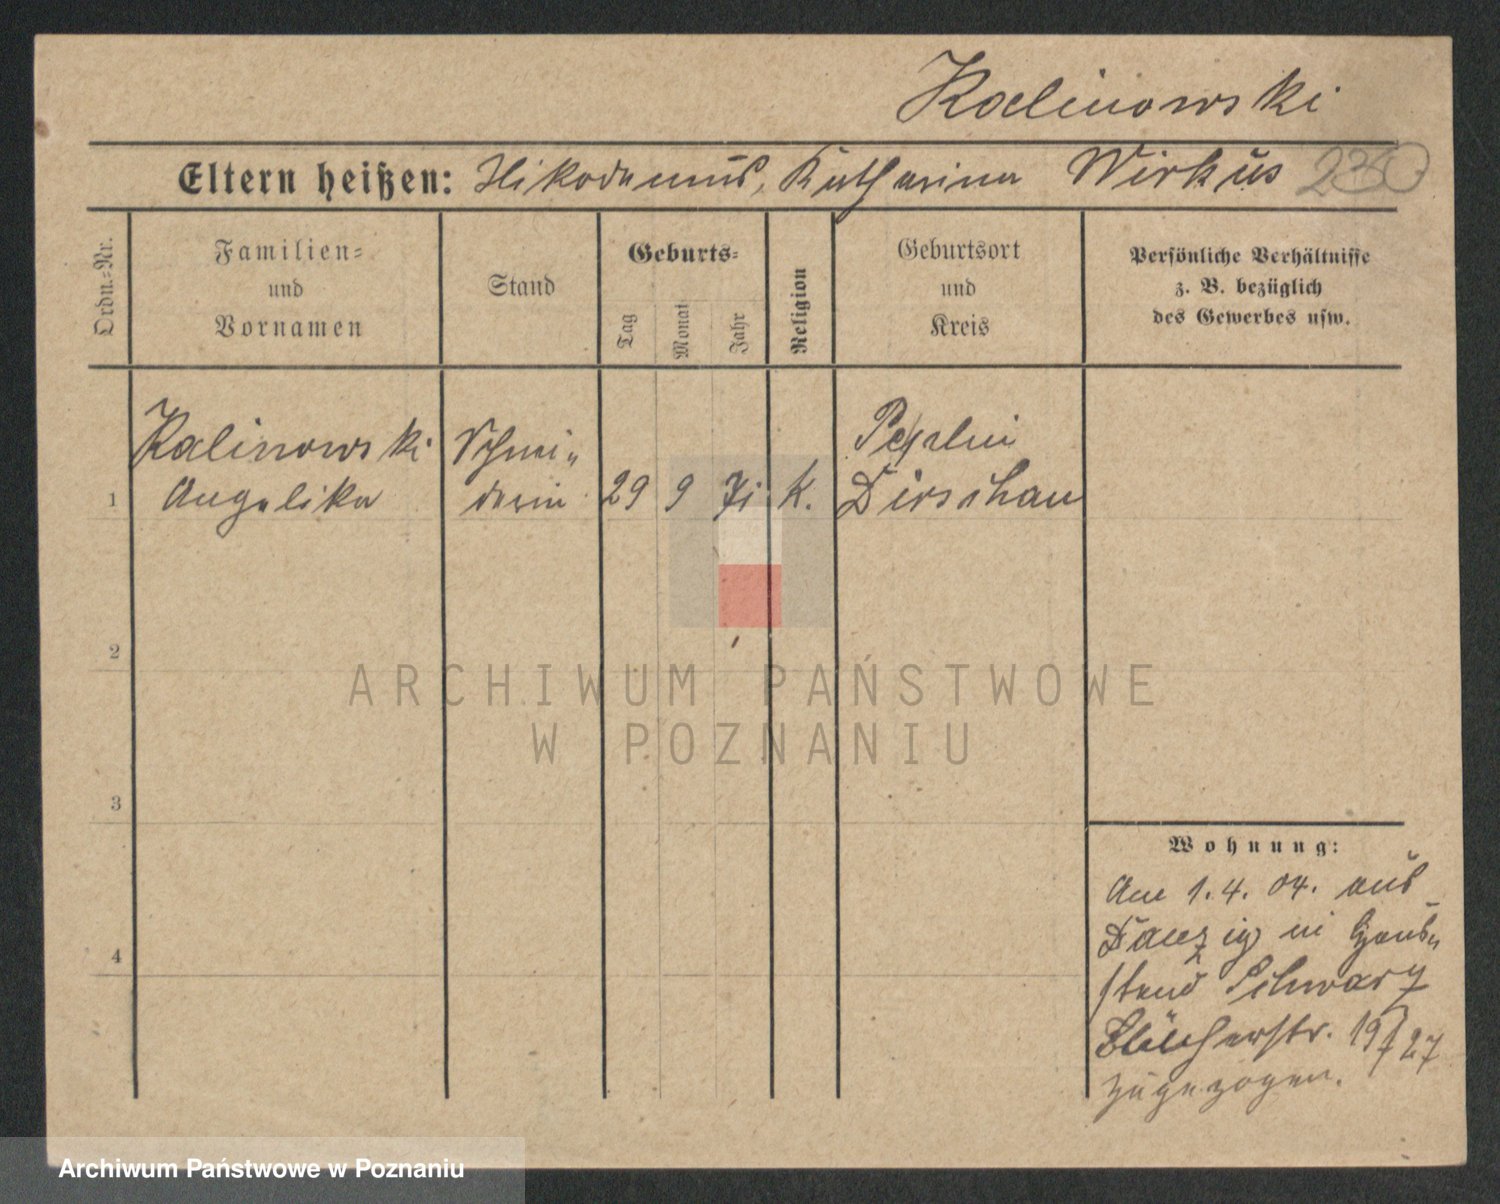 Kalinowski
Eltern heißen: Nikodemus, Katharina Wirkus 230
Ordn.-Nr.
Familien-
und
Vornamen
Stand
Geburts-
Tag
Monat
Jahr
Religion
Geburtsort
und
Kreis
Persönliche Verhältnisse
z. B. bezüglich
des Gewerbes usw.
Kalinowski Schnei- Pelplin
1 Angelika derin 29 9 71 K. Dirschau
2
3
4
Wohnung:
Am 1.4.04. aus
Danzig in
Schwarz
Blücherstr. 19/27
zugezogen.
ARCHIWUM PAŃSTWOWE
W POZNANIU
Archiwum Państwowe w Poznaniu